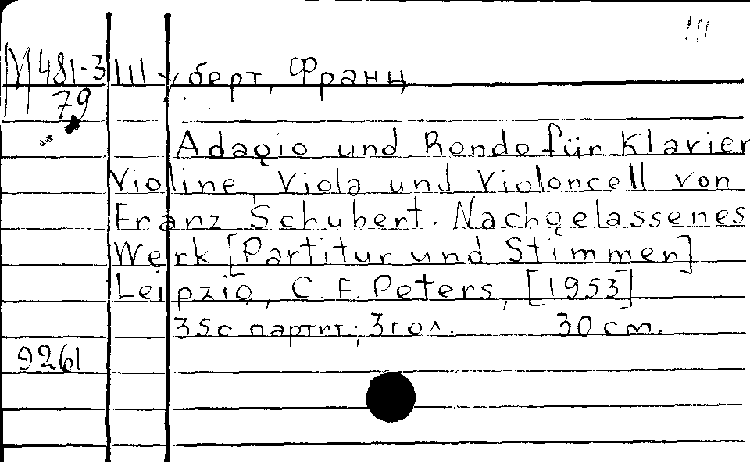 Ш
М481-3 Шуберт, Франц
79
Adagio und Rondo für Klavier
Violine, Viola und Violoncell von
Franz Schubert. Nachgelassenes
Werk [Partitur und Stimmen]
Leipzig, C. F. Peters, [1953]
35с партит.; 3 гол. 30 см.
9261